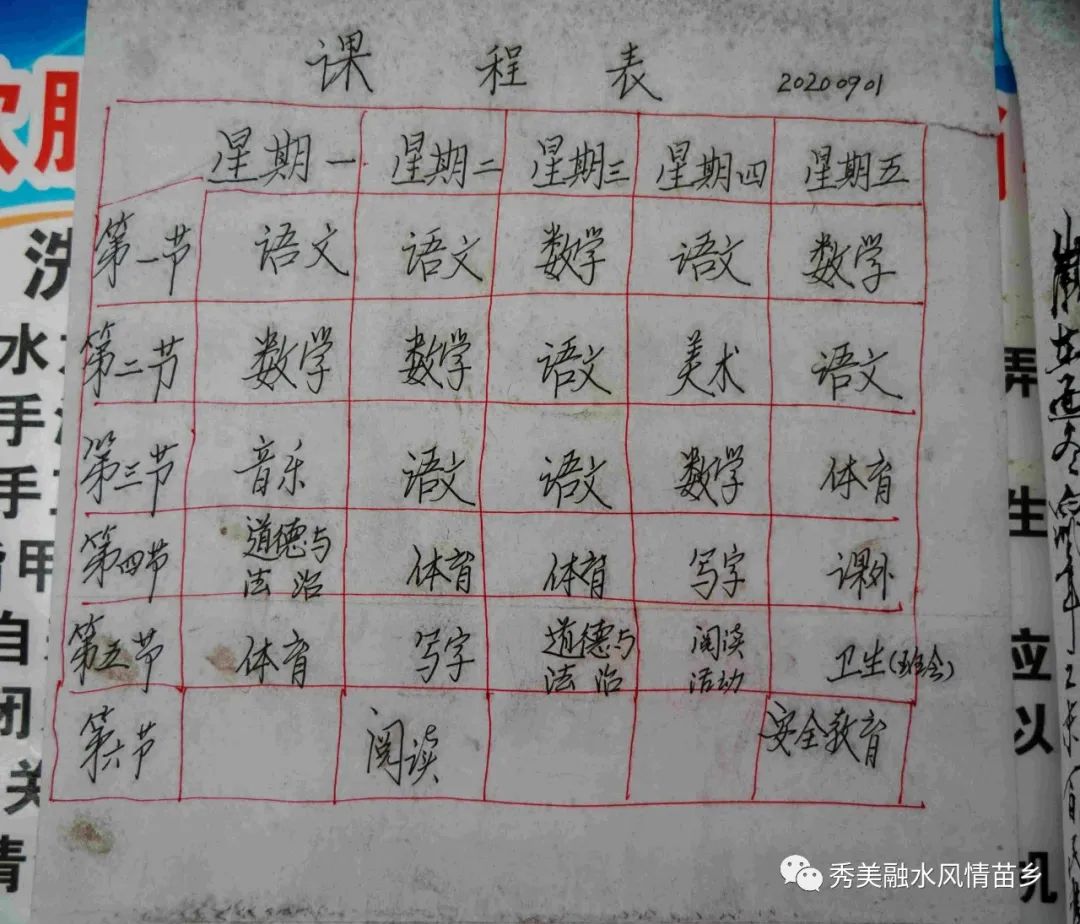 课 程 表 20200901
星期一 星期二 星期三 星期四 星期五
第一节 语文 语文 数学 语文 数学
第二节 数学 数学 语文 美术 语文
第三节 音乐 语文 语文 数学 体育
第四节 道德与法治 体育 体育 写字 课外
第五节 体育 写字 道德与法治 阅读活动 卫生(班会)
第六节 阅读 安全教育
洗
水
手
手
甲
自
闭
关
清
弄
生
应
以
机
秀美融水风情苗乡